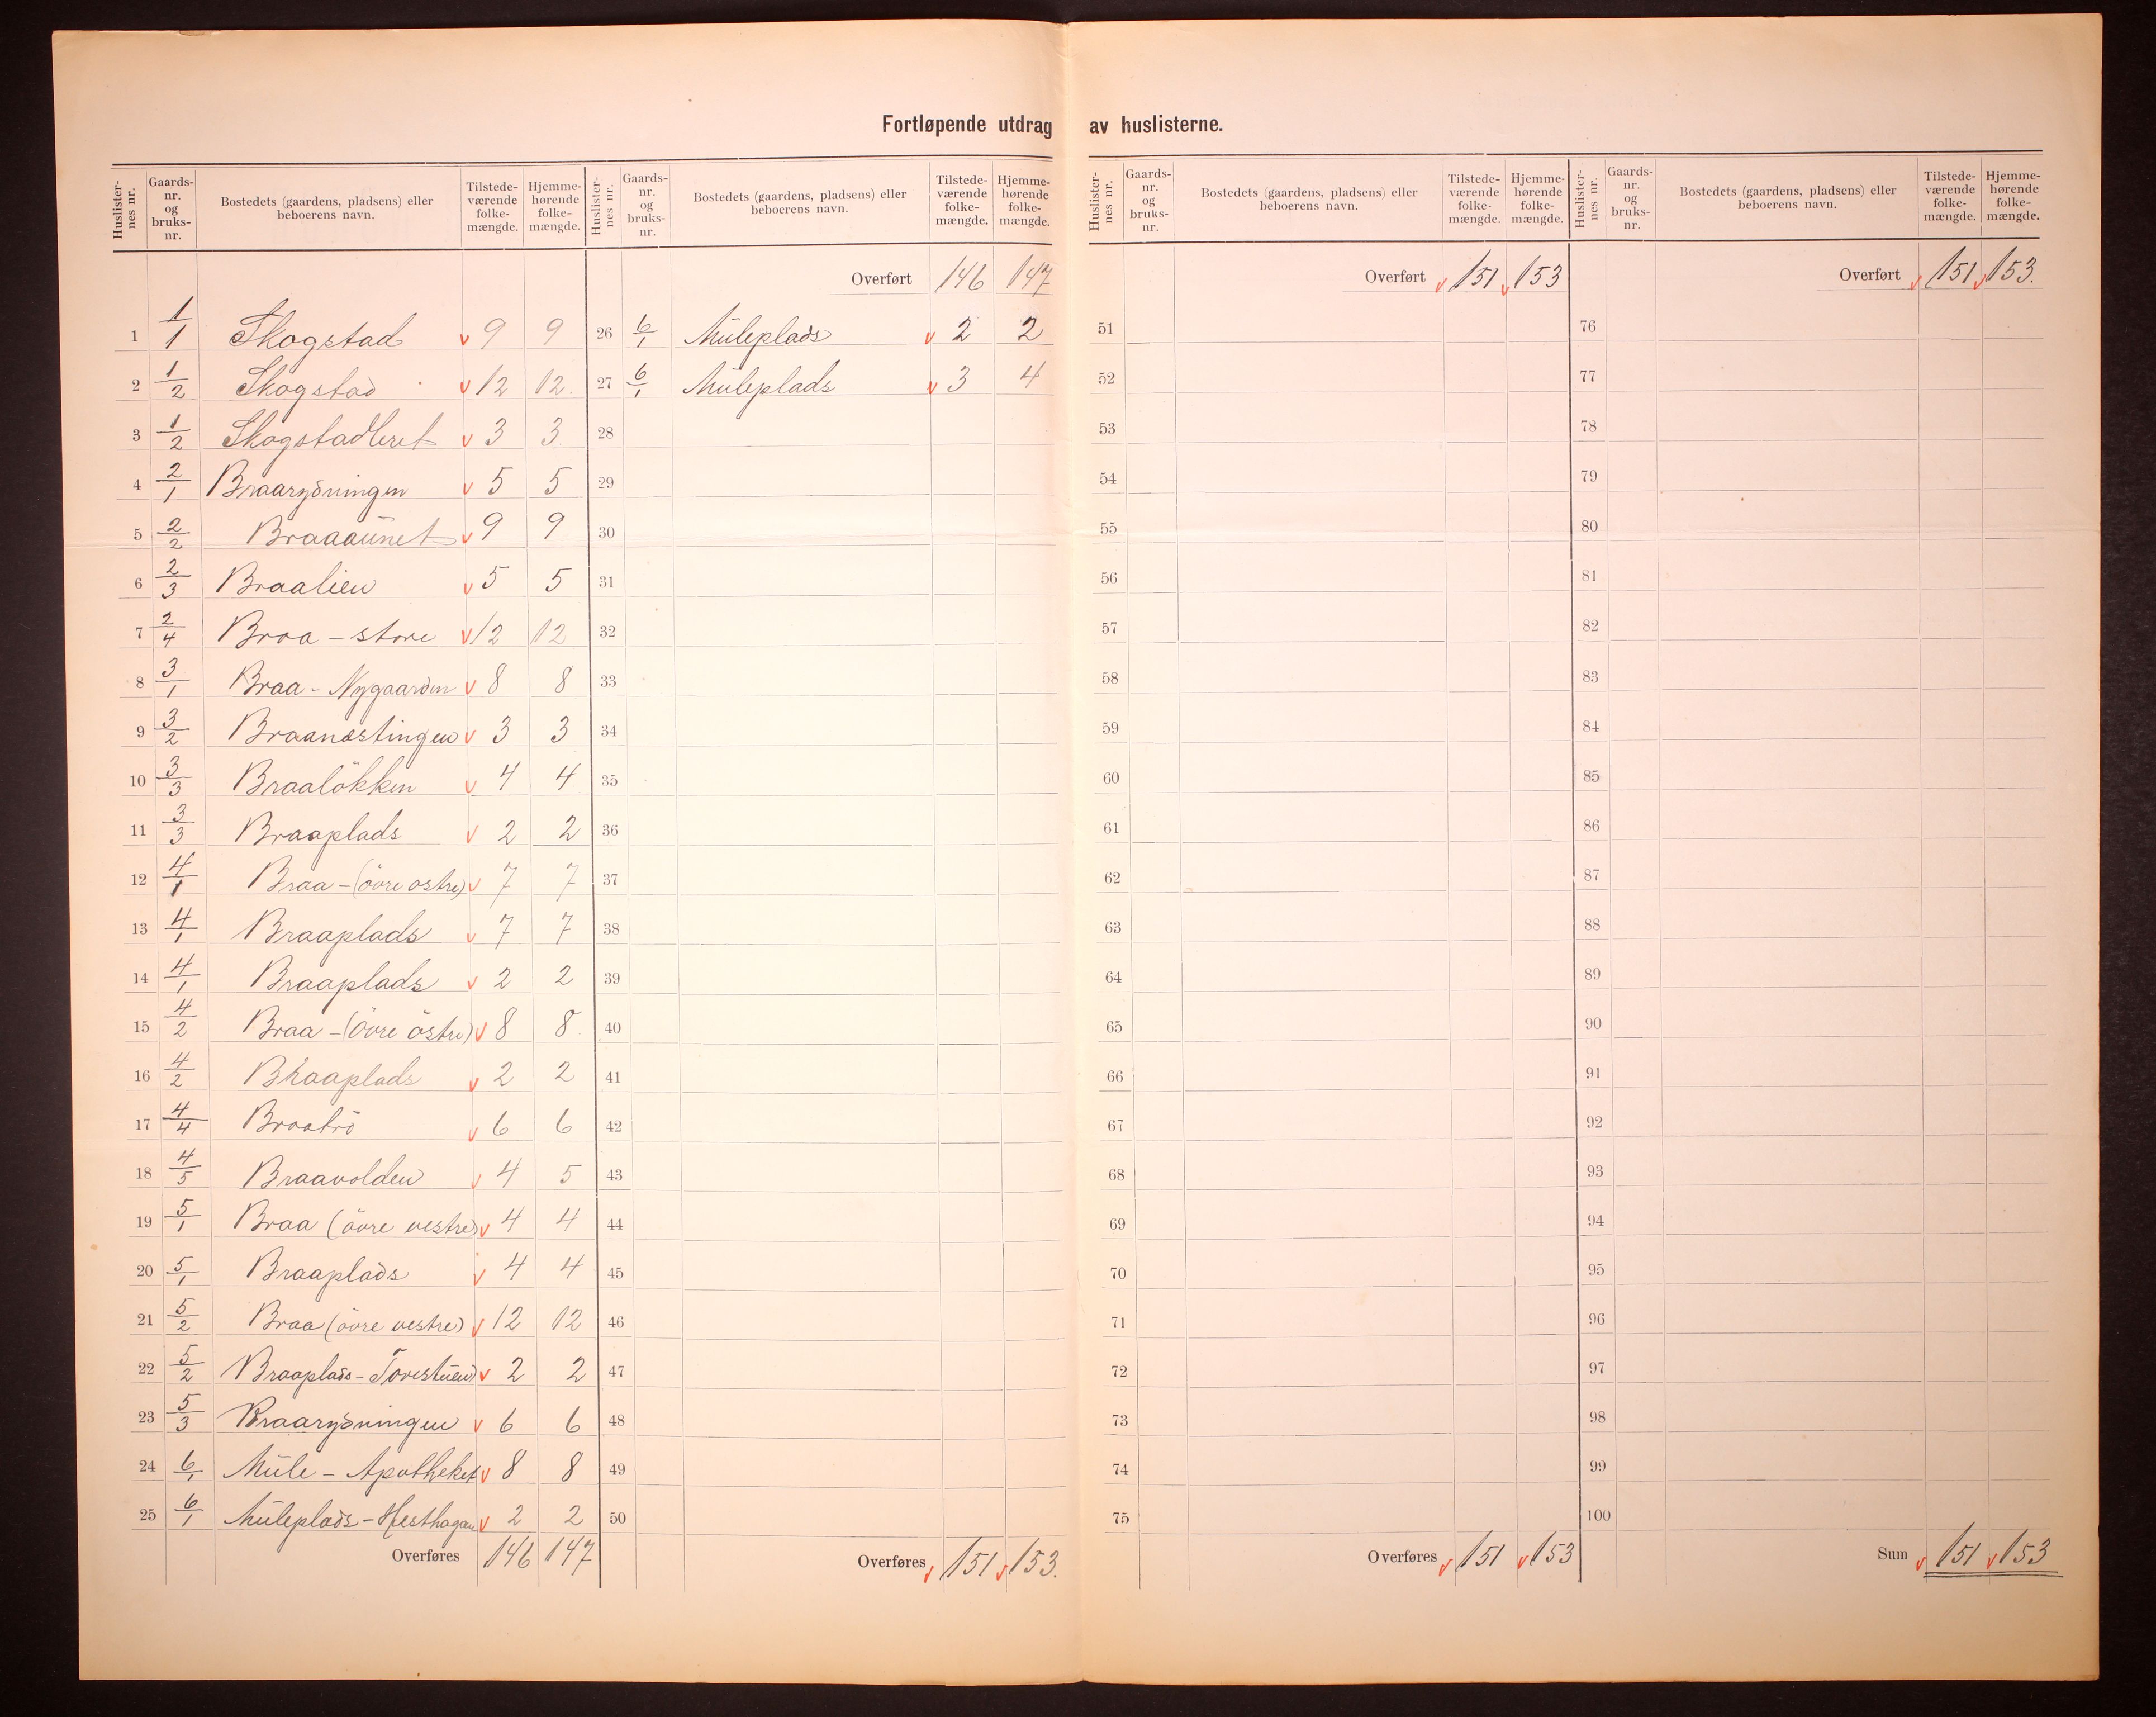 Fortløpende utdrag av huslisterne.
Huslister- nes nr. Gaards- nr. og bruks- nr. Bostedets (gaardens, pladsens) eller beboerens navn. Tilstede- værende folke- mængde. Hjemme- hørende folke- mængde.
1 1/1 Skogstad v 9 9
2 1/2 Skogstad v 12 12.
3 1/2 Skogstadleret v 3 3
4 2/1 Braarydningen v 5 5
5 2/2 Braaaunet v 9 9
6 2/3 Braalien v 5 5
7 2/4 Braa - store v 12 12
8 3/1 Braa - Nygaarden v 8 8
9 3/2 Braanæstingen v 3 3
10 3/3 Braalökken v 4 4
11 3/3 Braaplads v 2 2
12 4/1 Braa - (övre östre) v 7 7
13 4/1 Braaplads v 7 7
14 4/1 Braaplads v 2 2
15 4/2 Braa - (övre östre) v 8 8.
16 4/2 Braaplads v 2 2
17 4/4 Braatrö v 6 6
18 4/5 Braavolden v 4 5
19 5/1 Braa (övre vestre) v 4 4
20 5/1 Braaplads v 4 4
21 5/2 Braa (övre vestre) v 12 12
22 5/2 Braaplads - Torestuen v 2 2
23 5/3 Braarydningen v 6 6
24 6/1 Mule - Apotheket v 8 8
25 6/1 Muleplads - Hesthagan v 2 2
Overføres 146 147
Huslister- nes nr. Gaards- nr. og bruks- nr. Bostedets (gaardens, pladsens) eller beboerens navn. Tilstede- værende folke- mængde. Hjemme- hørende folke- mængde.
Overført 146 147
26 6/1 Muleplads v 2 2
27 6/1 Muleplads v 3 4
28
29
30
31
32
33
34
35
36
37
38
39
40
41
42
43
44
45
46
47
48
49
50
Overføres v 151 v 153.
Huslister- nes nr. Gaards- nr. og bruks- nr. Bostedets (gaardens, pladsens) eller beboerens navn. Tilstede- værende folke- mængde. Hjemme- hørende folke- mængde.
Overført v 151 v 153
51
52
53
54
55
56
57
58
59
60
61
62
63
64
65
66
67
68
69
70
71
72
73
74
75
Overføres v 151 v 153
Huslister- nes nr. Gaards- nr. og bruks- nr. Bostedets (gaardens, pladsens) eller beboerens navn. Tilstede- værende folke- mængde. Hjemme- hørende folke- mængde.
Overført v 151 v 153.
76
77
78
79
80
81
82
83
84
85
86
87
88
89
90
91
92
93
94
95
96
97
98
99
100
Sum v 151 v 153